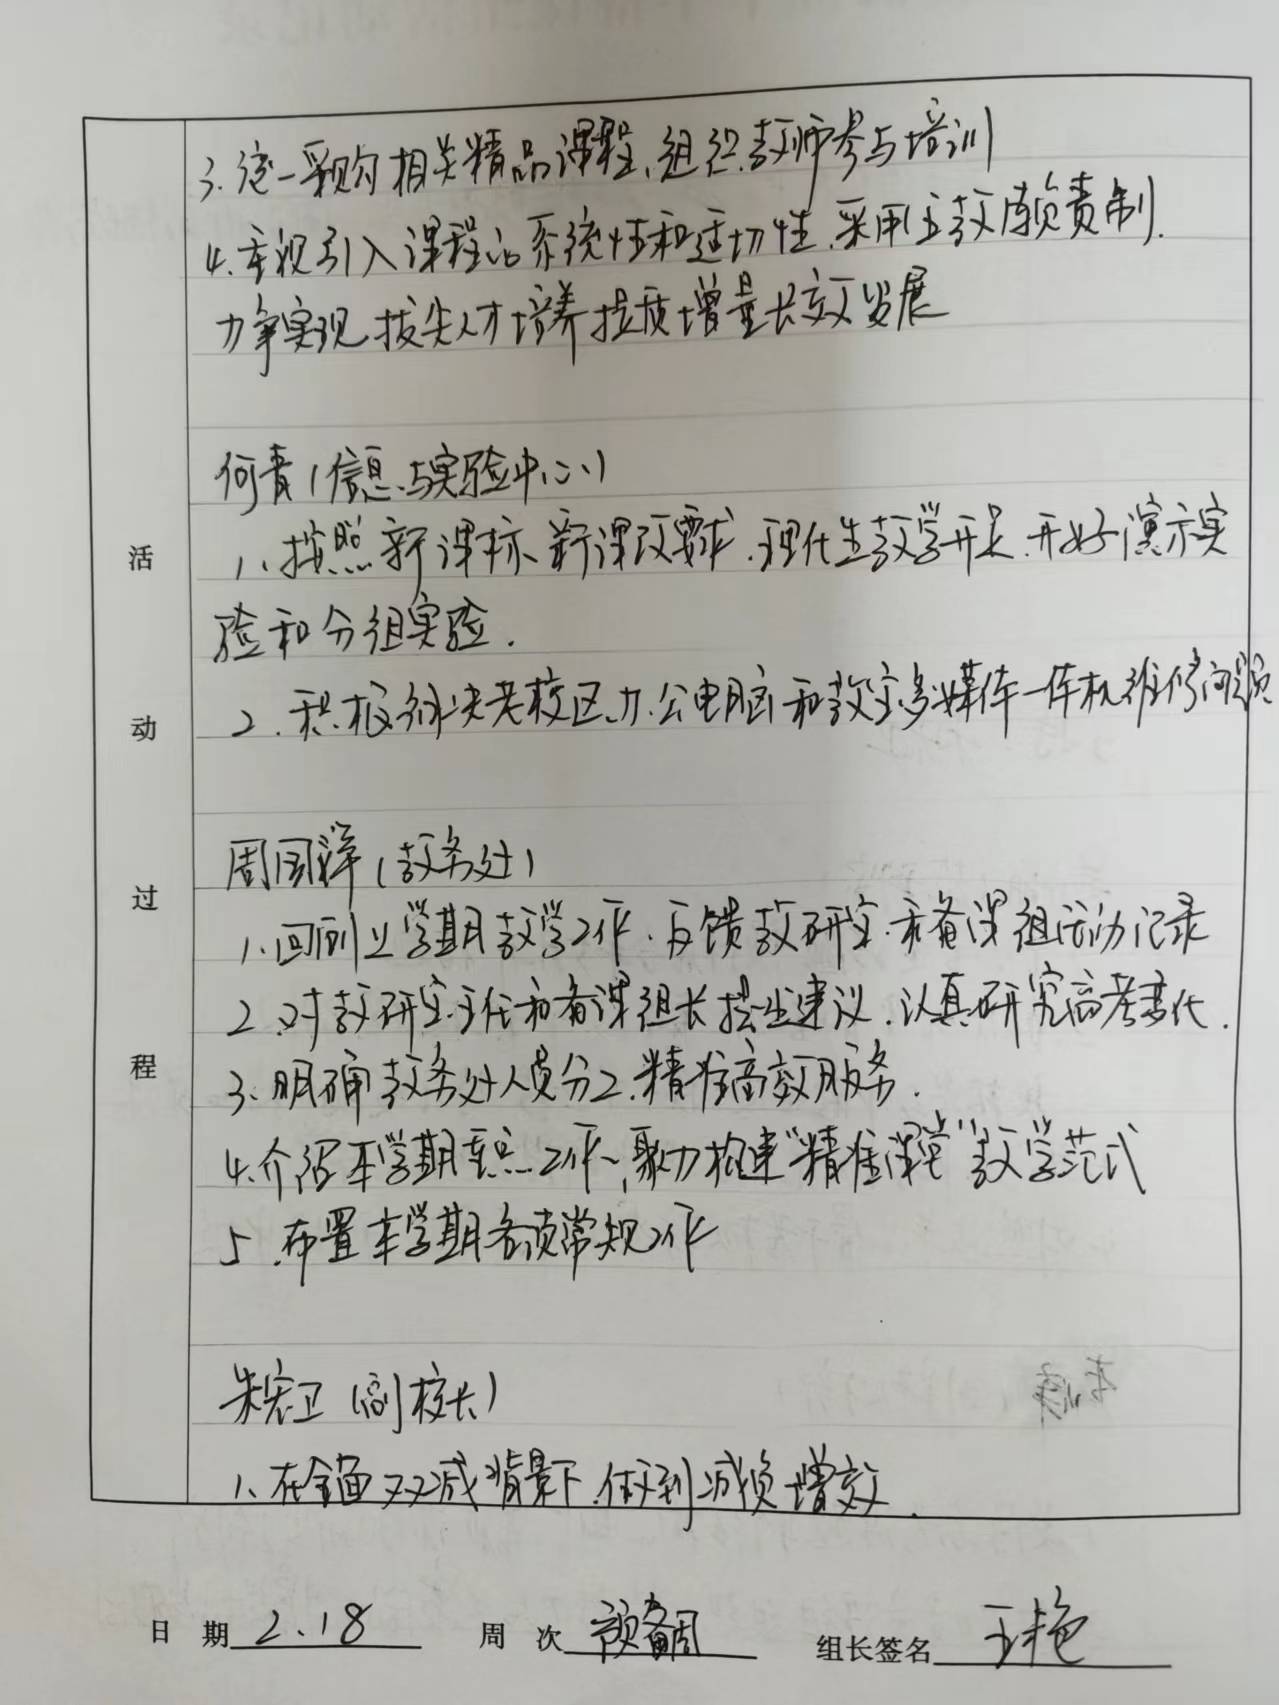 3.统一采购相关精品课程、组织教师参与培训
4.重视引入课程的系统性和适切性.采用主教练负责制.
力争实现拔尖人才培养提质增量长效发展
何青(信息与实验中心)
1、按照新课标、新课改要求.理化生教学开足.开好演示实
验和分组实验.
2.积极解决老校区办公电脑和教室多媒体一体机维修问题
周国洋(教务处)
1.回顾上学期教学工作.反馈教研室和备课组活动记录
2.对教研室主任和备课组长提出建议.认真研究高考
3.明确教务处人员分工.精准高效服务.
4.介绍本学期重点工作、聚力构建"精准课堂"教学范式
5.布置本学期各项常规工作
朱宏卫(副校长)
1、在全面双减背景下.做到减负增效.
活
动
过
程
日 期 2.18 周 次 预备周 组长签名 王艳